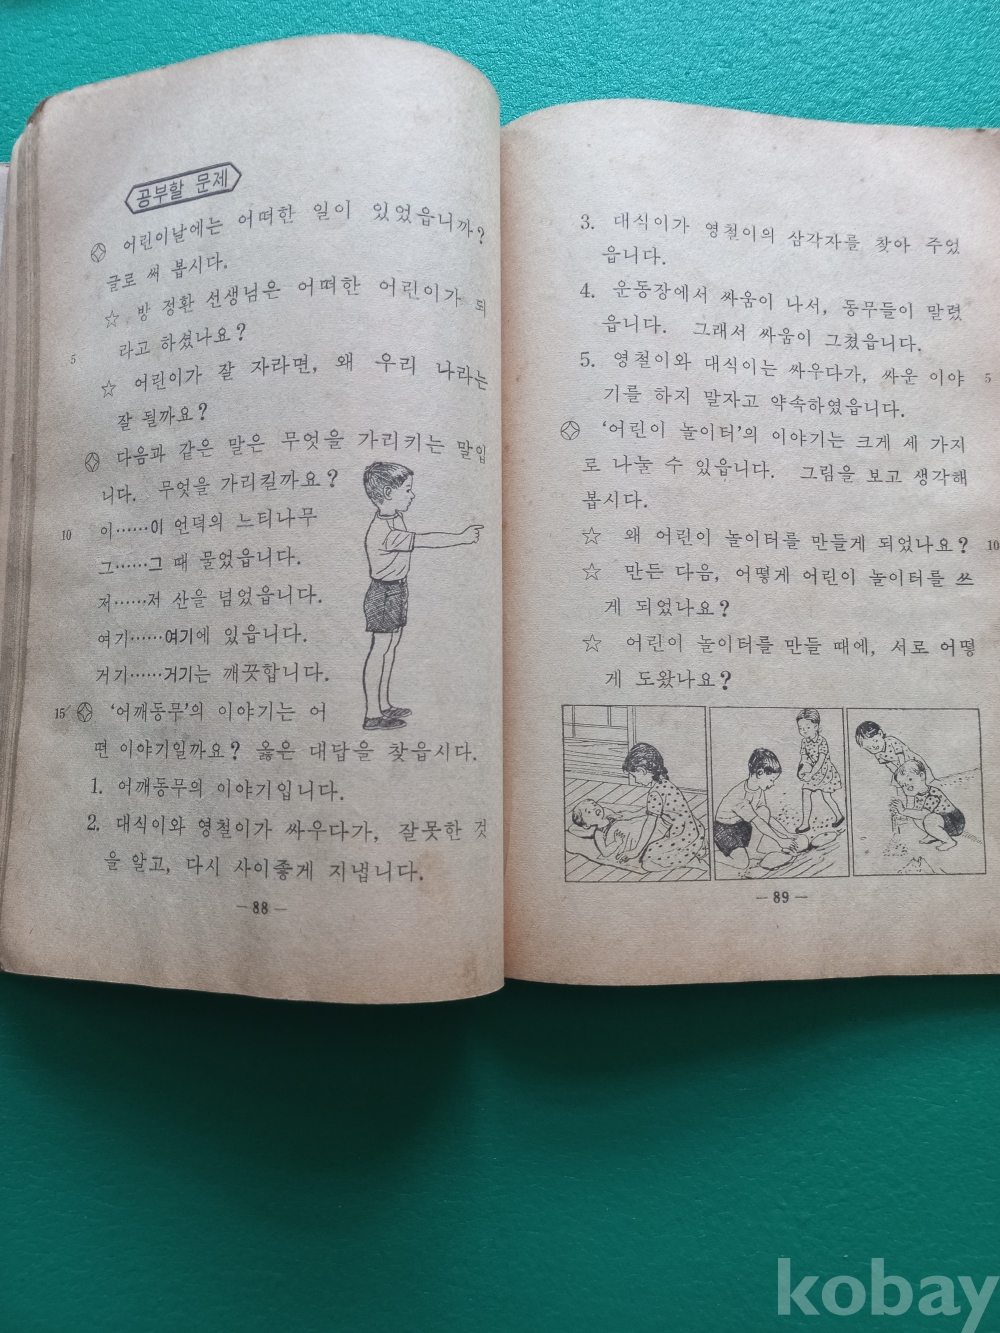 공부할 문제
어린이날에는 어떠한 일이 있었읍니까?
글로 써 봅시다.
☆ 방 정환 선생님은 어떠한 어린이가 되
5 라고 하셨나요?
☆ 어린이가 잘 자라면, 왜 우리 나라는
잘 될까요?
다음과 같은 말은 무엇을 가리키는 말입
니다. 무엇을 가리킬까요?
10 이……이 언덕의 느티나무
그……그 때 물었읍니다.
저……저 산을 넘었읍니다.
여기……여기에 있읍니다.
거기……거기는 깨끗합니다.
15 '어깨동무'의 이야기는 어
떤 이야기일까요? 옳은 대답을 찾읍시다.
1. 어깨동무의 이야기입니다.
2. 대식이와 영철이가 싸우다가, 잘못한 것
을 알고, 다시 사이좋게 지냅니다.
— 88 —
3. 대식이가 영철이의 삼각자를 찾아 주었
읍니다.
4. 운동장에서 싸움이 나서, 동무들이 말렸
읍니다. 그래서 싸움이 그쳤읍니다.
5. 영철이와 대식이는 싸우다가, 싸운 이야 5
기를 하지 말자고 약속하였읍니다.
'어린이 놀이터'의 이야기는 크게 세 가지
로 나눌 수 있읍니다. 그림을 보고 생각해
봅시다.
☆ 왜 어린이 놀이터를 만들게 되었나요? 10
☆ 만든 다음, 어떻게 어린이 놀이터를 쓰
게 되었나요?
☆ 어린이 놀이터를 만들 때에, 서로 어떻
게 도왔나요?
— 89 —
kobay